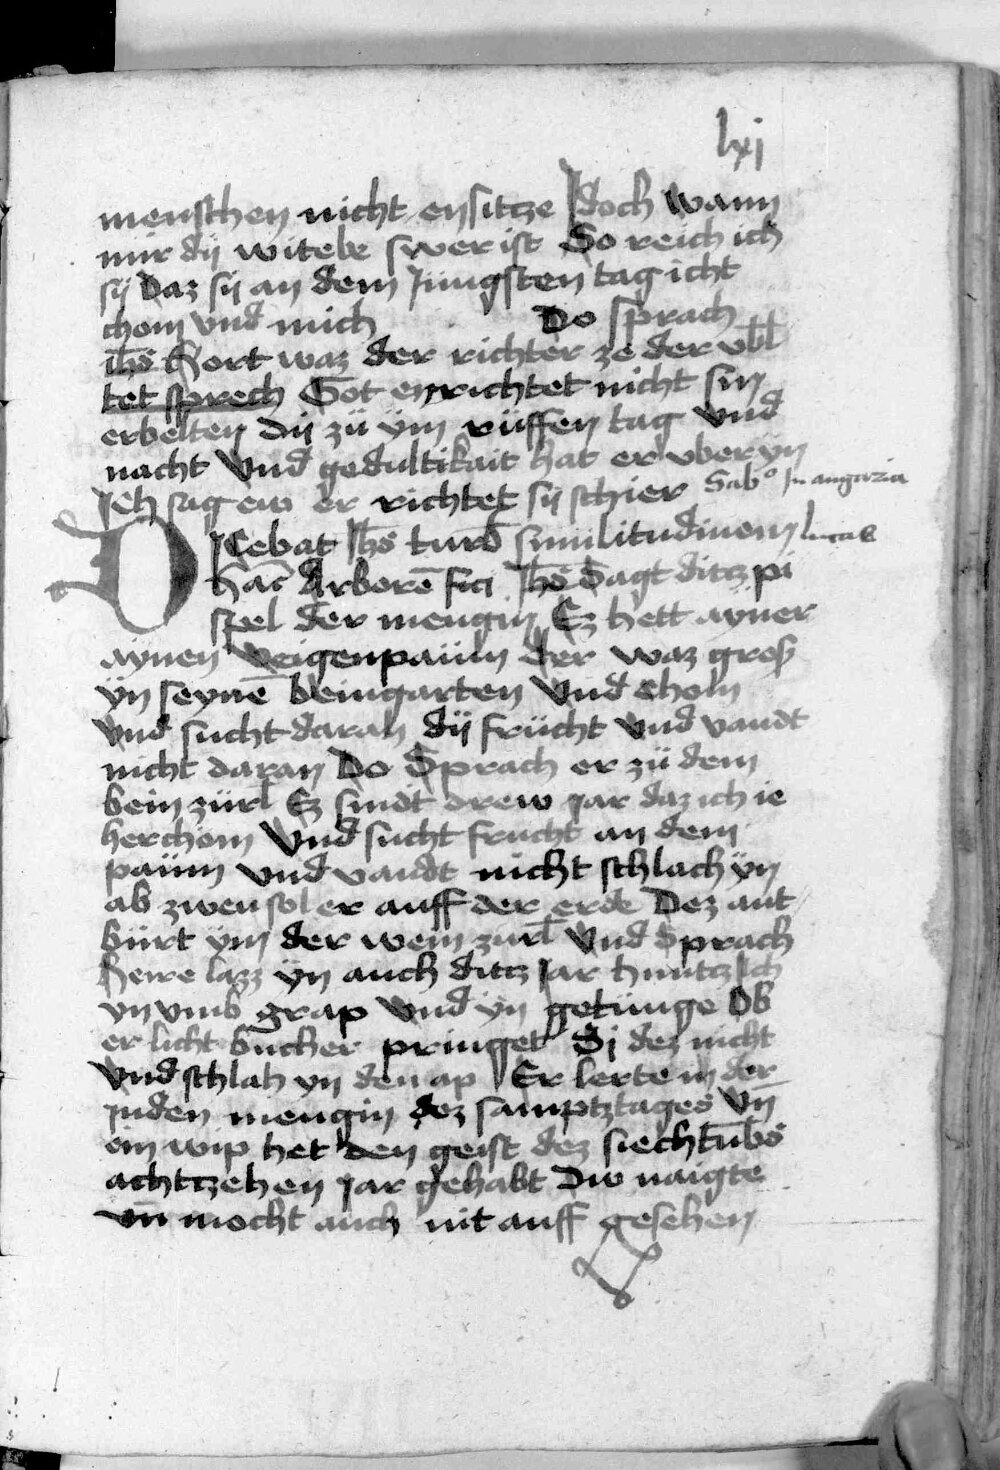 lxj
menschen nicht ensitze Jdoch wann
mir dÿ witebe swer ist So reich ich
sÿ Daz sÿ an dem Jüngsten tag icht
chom vnd mich Do sprach
ih̄s Hort waz der richter ze der vb̄l
tet sprech Got enrichtet nicht sin
erbelten dÿ zü ÿm rüffen tag vnd
nacht Vnd gedultikait hat er vber ÿn
Jch sag ew er richtet sÿ schier Sabᵒ Jn angaria
DJCebat Jh̄s turb̄ similitudinem lucas
hāc Arborē fici Jh̄s Sagt ditz pi
spel der mengin Ez hett aÿner
aÿnen veigenpaüm der waz gros
ÿn seynē beingarten Vnd chom
vnd sucht daran dÿ frücht vnd vandt
nicht daran Do Sprach er zü dem
bein zürl Ez sindt drew Jar daz ich ie
her chom Vnd sucht frucht an dem
paüm vnd vandt nicht schlach ÿn
ab zweu sol er auff der erde Dez ant
bürt ÿm der wein zürl Vnd Sprach
Herre lazz ÿn auch ditz Jar huntz Jch
yn vmb grap Vnd ÿn getünge Ob
er licht bucher pringet Si dez nicht
Vnd schlah yn den ap Er lerte in der
Juden mengin dez samptztages Vn̄
ein wip het den geist dez siechtūbs
achtzehen Jar gehabt Diw naigte
vn̄ mocht auch nit auff gesehen